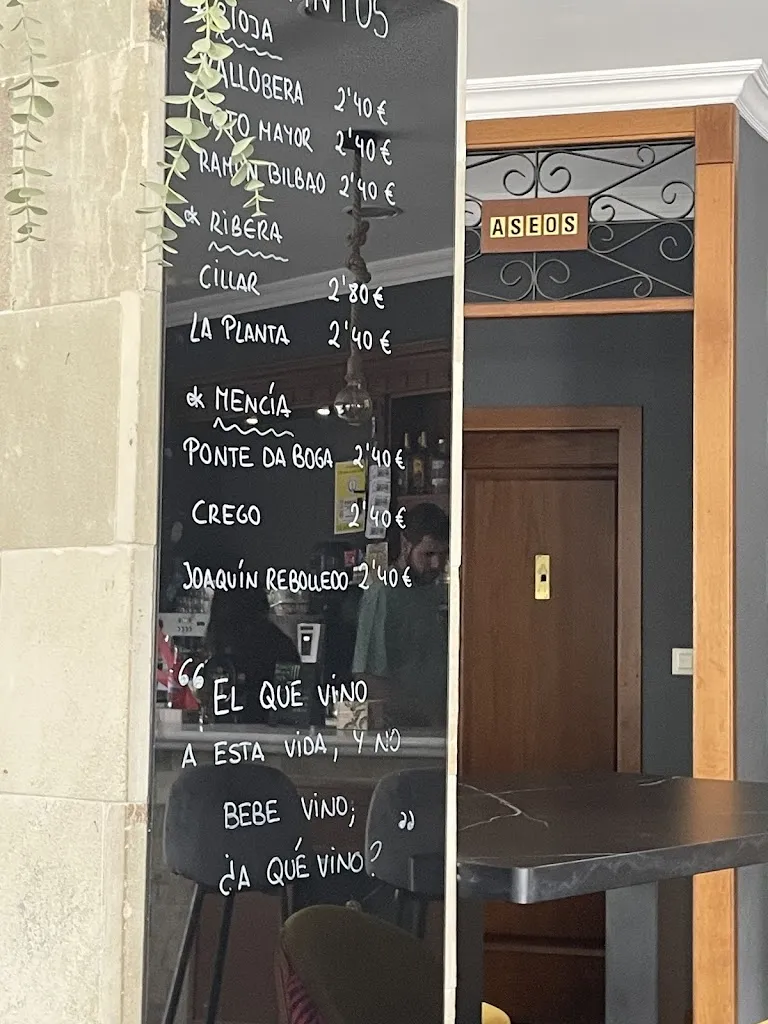 RIOJA
ALLOBERA 2'40€
MAYOR 2'40€
RAMÓN BILBAO 2'40€
* RIBERA
CILLAR 2'80€
LA PLANTA 2'40€
* MENCÍA
PONTE DA BOGA 2'40€
CREGO 2'40€
JOAQUÍN REBOLLEDO 2'40€
“ EL QUE VINO
A ESTA VIDA, Y NO
BEBE VINO;
¿A QUÉ VINO? ”
ASEOS